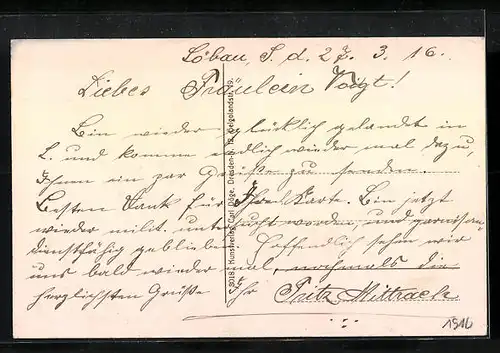 Löbau, S. d. 27. 3. 16.
Liebes Fräulein Voigt!
Bin wieder glücklich gelandet in
L. und komme endlich wieder mal dazu,
Ihnen ein par Grüße zu senden.
Besten Dank für Ihre Karte. Bin jetzt
wieder milit. untersucht worden, und garnison-
dienstfähig geblieben. Hoffendlich sehn wir
uns bald wieder mal, nochmals die
herzlichsten Grüße Ihr Fritz Mittrach
3018 Kunstverlag Carl Döge, Dresden-N. 12, Helgolandstr. 19.
1916